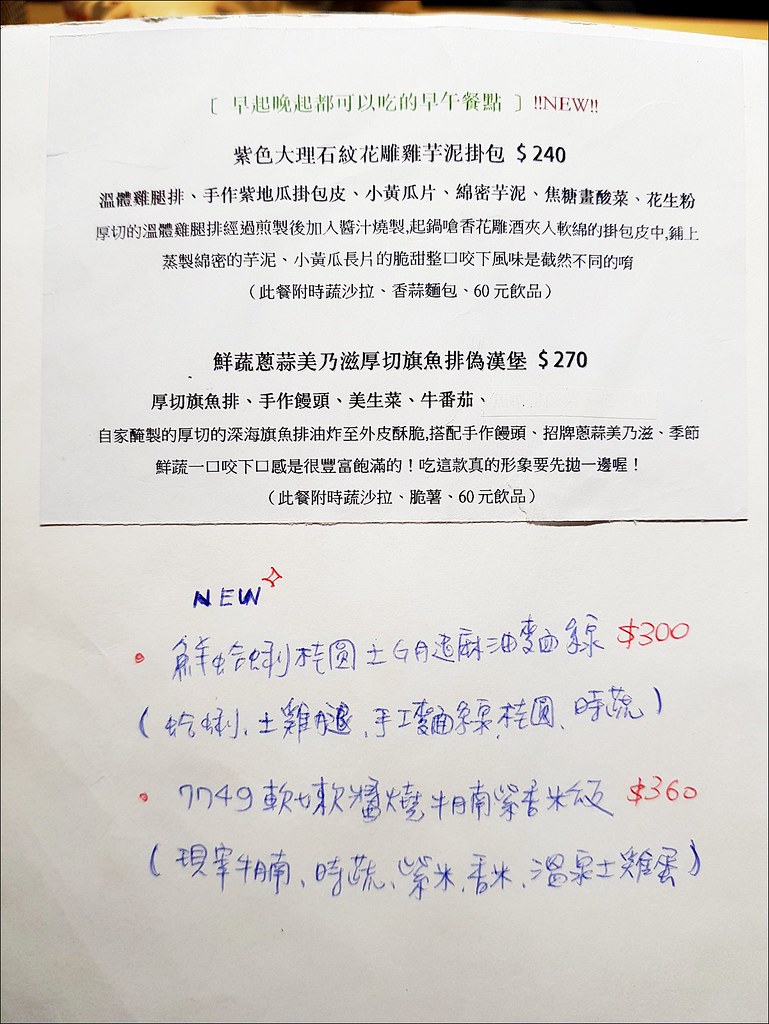 〔 早起晚起都可以吃的早午餐點 〕!!NEW!!
紫色大理石紋花雕雞芋泥掛包 $240
溫體雞腿排、手作紫地瓜掛包皮、小黃瓜片、綿密芋泥、焦糖畫酸菜、花生粉
厚切的溫體雞腿排經過煎製後加入醬汁燒製,起鍋嗆香花雕酒夾入軟綿的掛包皮中,鋪上
蒸製綿密的芋泥、小黃瓜長片的脆甜整口咬下風味是截然不同的唷
（此餐附時蔬沙拉、香蒜麵包、60 元飲品）
鮮蔬蔥蒜美乃滋厚切旗魚排偽漢堡 $270
厚切旗魚排、手作饅頭、美生菜、牛番茄、
自家醃製的厚切的深海旗魚排油炸至外皮酥脆,搭配手作饅頭、招牌蔥蒜美乃滋、季節
鮮蔬一口咬下口感是很豐富飽滿的！吃這款真的形象要先拋一邊喔！
（此餐附時蔬沙拉、脆薯、60 元飲品）
NEW
• 鮮蛤蜊桂圓土G腿麻油麵線 $300
(蛤蜊、土雞腿、手工麵線、桂圓、時蔬)
• 7749軟嫩醬燒牛腩紫香米飯 $360
(現宰牛腩、時蔬、紫米、香米、溫泉土雞蛋)